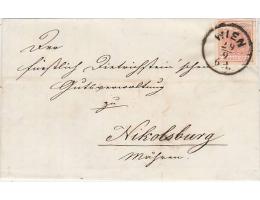 Der
fürstlich Dietrichstein'schen
Gutsverwaltung
zu
Nikolsburg
Mähren.
WIEN